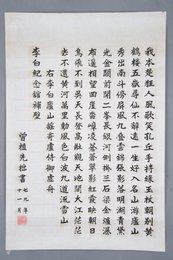 我本楚狂人鳳歌笑孔丘手持綠玉杖朝別黃
鶴樓五嶽尋仙不辭遠一生好入名山游廬山
秀出南斗傍屏風九疊雲錦張影落明湖青黛
光金闕前開二峯長銀河倒掛三石梁爐瀑
布遙相望崖沓嶂凌蒼蒼翠影紅霞映朝日
鳥飛不到吳天長登高壯觀天地間大江茫茫
去不還黃河萬里動風色白波九道流雪山
右李白廬山謠寄盧侍御虛舟
李白紀念館補壁
曾植先拙書
七九年
十一月